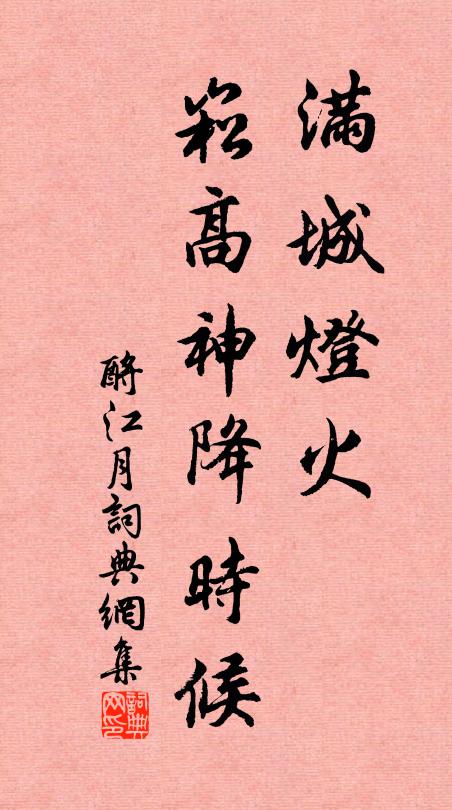 滿城燈火
崧高神降時候
酹江月詞典網集
詞典网印